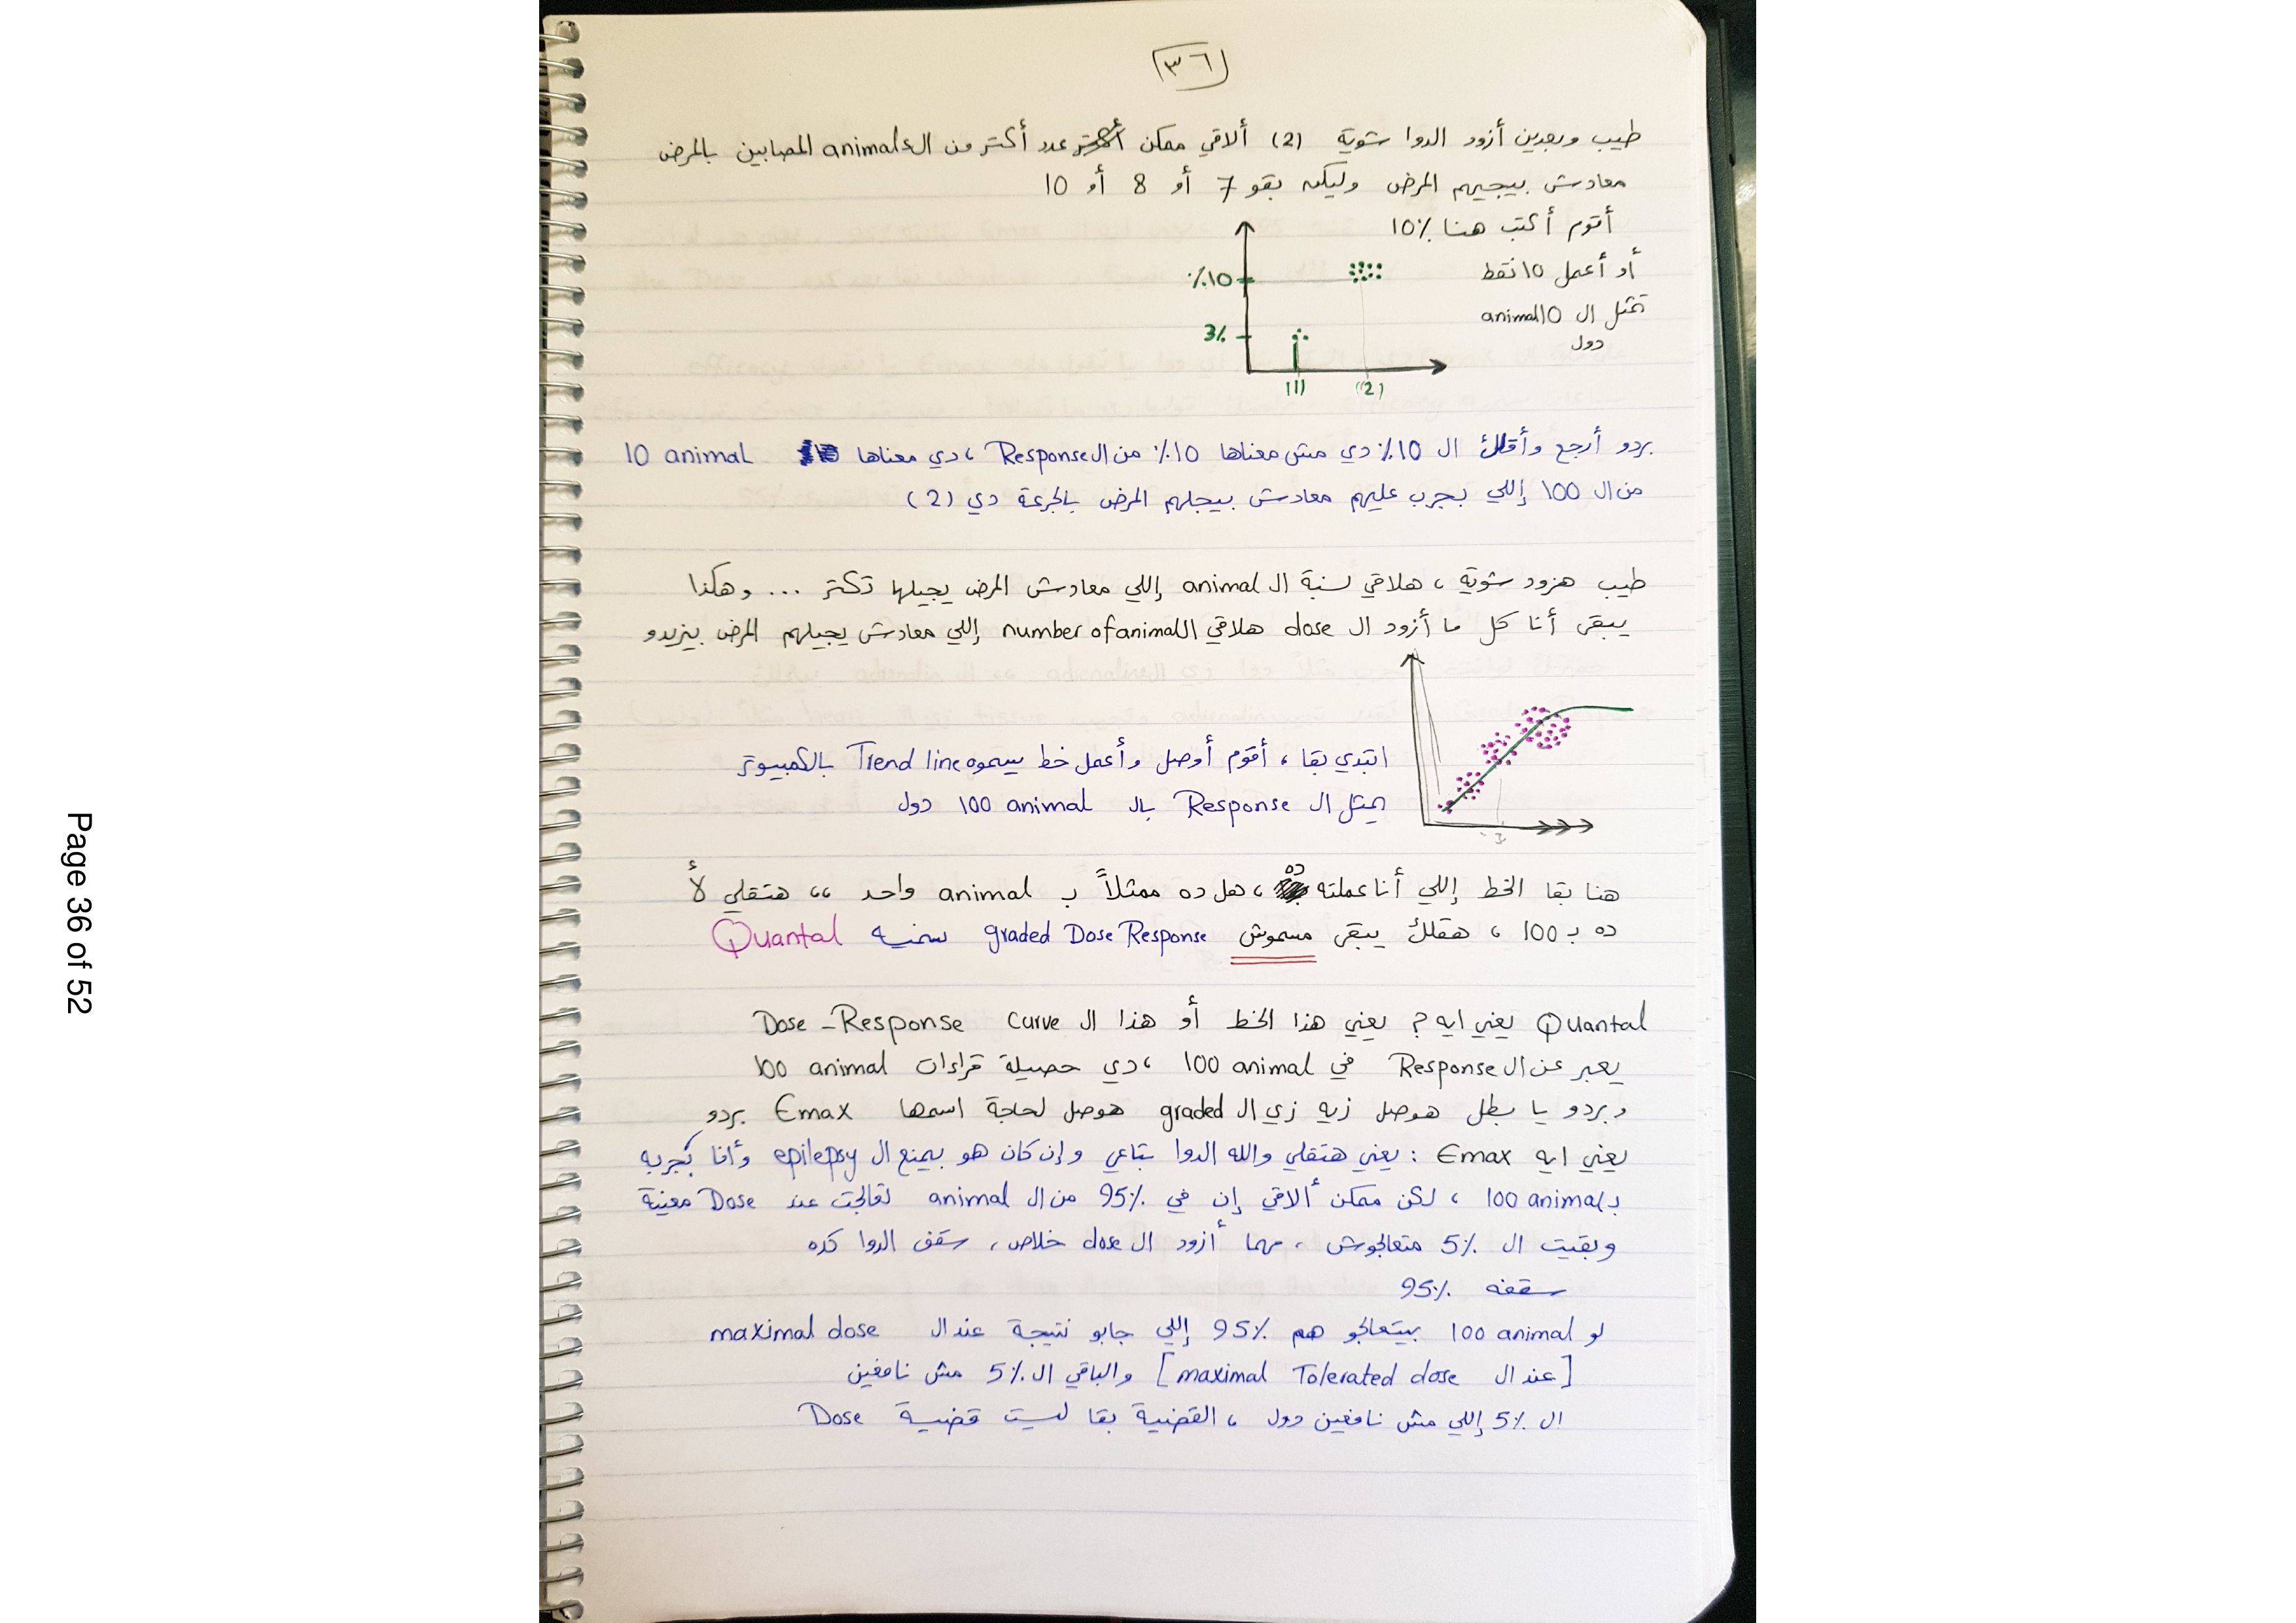 ٣٦
طيب وبعدين أزود الدوا شوية (2) ألاقي ممكن عدد أكتر من الـ animals المصابين بالمرض
معادش بيجيهم المرض وليكن بقو 7 أو 8 أو 10
أقوم أكتب هنا 10%
أو أعمل 10 نقط
تمثل ال 10 animal
دول
%10
3%
(1) (2)
بردو أرجع وأقلك ال 10% دي مش معناها 10% من ال Response ، دي معناها 10 animal
من ال 100 إللي بجرب عليهم معادش بيجلهم المرض بالجرعة دي (2)
طيب هزود شوية ، هلاقي نسبة ال animal إللي معادش المرض يجيلها تكتر ... وهكذا
يبقى أنا كل ما أزود ال dose هلاقي ال number of animal إللي معادش يجيلهم المرض بيزيدو
ابتدي بقا ، أقوم أوصل وأعمل خط بيسموه Trend line بالكمبيوتر
يمثل ال Response بال 100 animal دول
هنا بقا الخط إللي أنا عملته ده ، هل ده ممثلاً ب animal واحد ،، هتقلي لأ
ده ب 100 ، هقلك يبقى مسموش graded Dose Response سمنيه Quantal
Quantal يعني ايه ؟ يعني هذا الخط أو هذا ال Dose - Response curve
يعبر عن ال Response في 100 animal ، دي حصيلة قراءات 100 animal
وبردو يا بطل هوصل زيه زي ال graded هوصل لحاجة اسمها Emax بردو
يعني ايه Emax : يعني هتقلي والله الدوا بتاعي وإن كان هو بيمنع ال epilepsy وأنا بُجربه
بـ 100 animal ، لكن ممكن ألاقي إن في 95% من ال animal تعالجت عند Dose معينة
وبقيت ال 5% متعالجوش ، مهما أزود ال dose خلاص ، سقف الدوا كده
سقفه 95%
لو 100 animal بيتعالجو هم 95% إللي جابو نتيجة عند ال maximal dose
[عند ال maximal Tolerated dose] والباقي ال 5% مش نافعين
ال 5% إللي مش نافعين دول ، القضية بقا ليست قضية Dose
Page 36 of 52